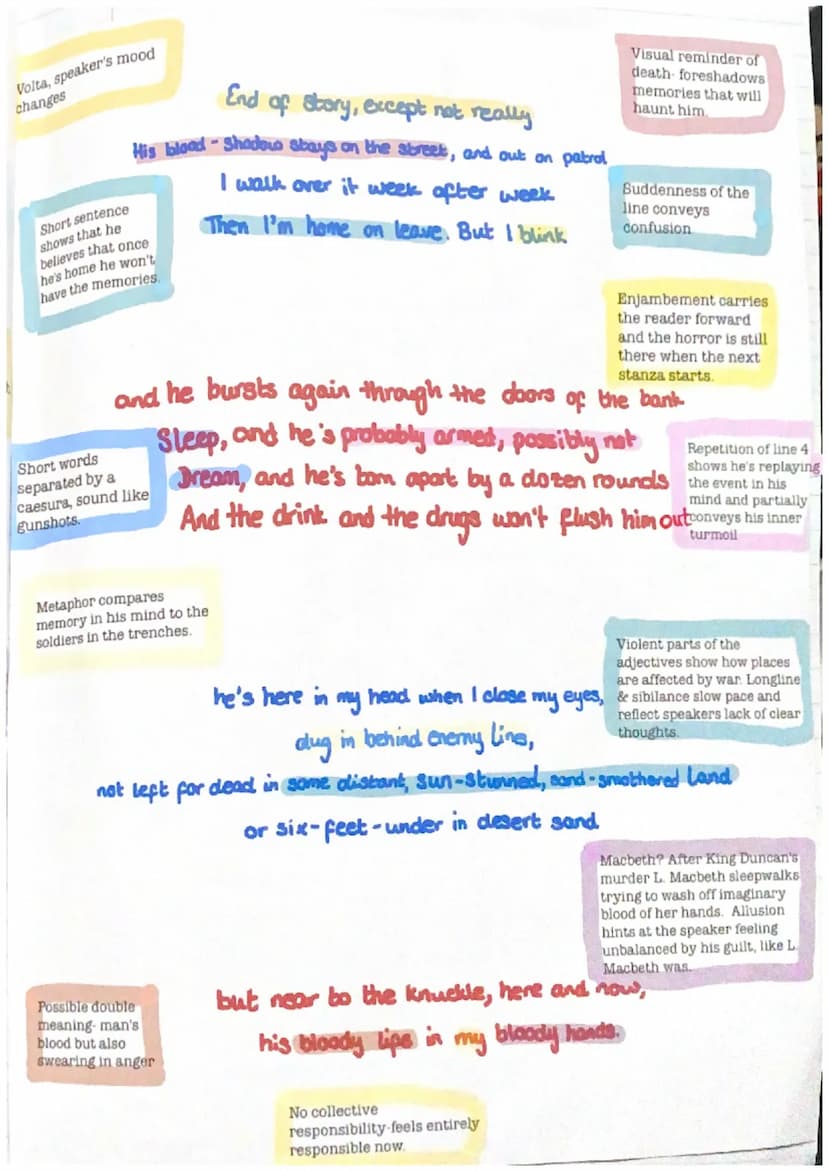 Volta, speaker's mood
changes
Visual reminder of
death- foreshadows
memories that will
haunt him.
End of story, except not really
His blood - shadow stays on the street, and out on patrol
I walk over it week after week
Then I'm home on leave. But I blink
Short sentence
shows that he
believes that once
he's home he won't
have the memories.
Suddenness of the
line conveys
confusion
Enjambement carries
the reader forward
and the horror is still
there when the next
stanza starts.
and he bursts again through the doors of the bank
Sleep, and he's probably armed, possibly not
Dream, and he's torn apart by a dozen rounds
And the drink and the drugs won't flush him out
Short words
separated by a
caesura, sound like
gunshots.
Repetition of line 4
shows he's replaying
the event in his
mind and partially
conveys his inner
turmoil
Metaphor compares
memory in his mind to the
soldiers in the trenches.
Violent parts of the
adjectives show how places
are affected by war. Longline
& sibilance slow pace and
reflect speakers lack of clear
thoughts.
he's here in my head when I close my eyes,
dug in behind enemy line,
not left for dead in some distant, sun-stunned, sand-smothered land
or six-feet-under in desert sand
Macbeth? After King Duncan's
murder L. Macbeth sleepwalks
trying to wash off imaginary
blood of her hands. Allusion
hints at the speaker feeling
unbalanced by his guilt, like L.
Macbeth was.
but near to the knuckle, here and now,
his bloody lips in my bloody hands.
Possible double
meaning- man's
blood but also
swearing in anger
No collective
responsibility-feels entirely
responsible now.